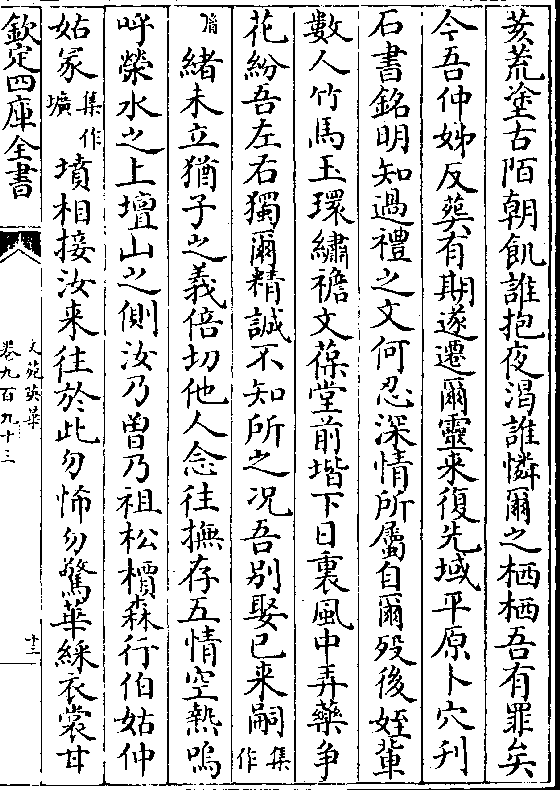 荄荒塗古陌朝飢誰抱夜渴誰憐爾之栖栖吾有罪矣
今吾仲姊反葬有期遂遷爾靈来復先域平原卜穴刋
石書銘明知過禮之文何忍深情所屬自爾殁後姪輩
數人竹馬玉環繡襜文葆堂前堦下日裏風中弄藥争
花紛吾左右獨爾精誠不知所之况吾别娶已来嗣集作
緒未立猶子之義倍切他人念往撫存五情空熱嗚
呼滎水之上壇山之側汝乃曽乃祖松檟森行伯姑仲
姑冡集作壙墳相接汝来往於此勿怖勿驚華綵衣裳甘
欽定四庫全書
文苑英華
卷九百九十三
十三